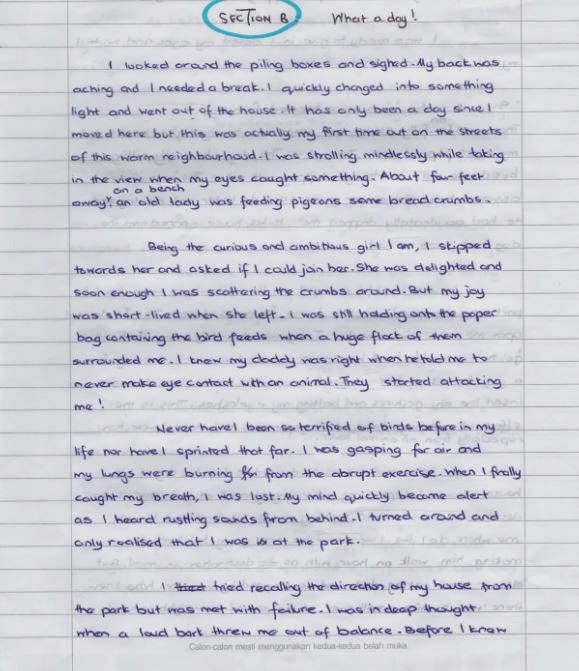 SECTION B: What a day!
I looked around the piling boxes and sighed. My back was
aching and I needed a break. I quickly changed into something
light and went out of the house. It has only been a day since I
moved here but this was actually my first time out on the streets
of this warm neighbourhood. I was strolling mindlessly while taking
in the view when my eyes caught something. About four feet
on a bench
away, an old lady was feeding pigeons some bread crumbs.
Being the curious and ambitious girl I am, I skipped
towards her and asked if I could join her. She was delighted and
soon enough I was scattering the crumbs around. But my joy
was short-lived when she left. I was still holding onto the paper
bag containing the bird feeds when a huge flock of them
surrounded me. I knew my daddy was right when he told me to
never make eye contact with an animal. They started attacking
me!
Never have I been so terrified of birds before in my
life nor have I sprinted that far. I was gasping for air and
my lungs were burning from the abrupt exercise. When I finally
caught my breath, I was lost. My mind quickly became alert
as I heard rustling sounds from behind. I turned around and
only realised that I was at the park.
I tried tried recalling the direction of my house from
the park but was met with failure. I was in deep thought
when a loud bark threw me out of balance. Before I knew
Calon-calon mesti menggunakan kedua-kedua belah muka